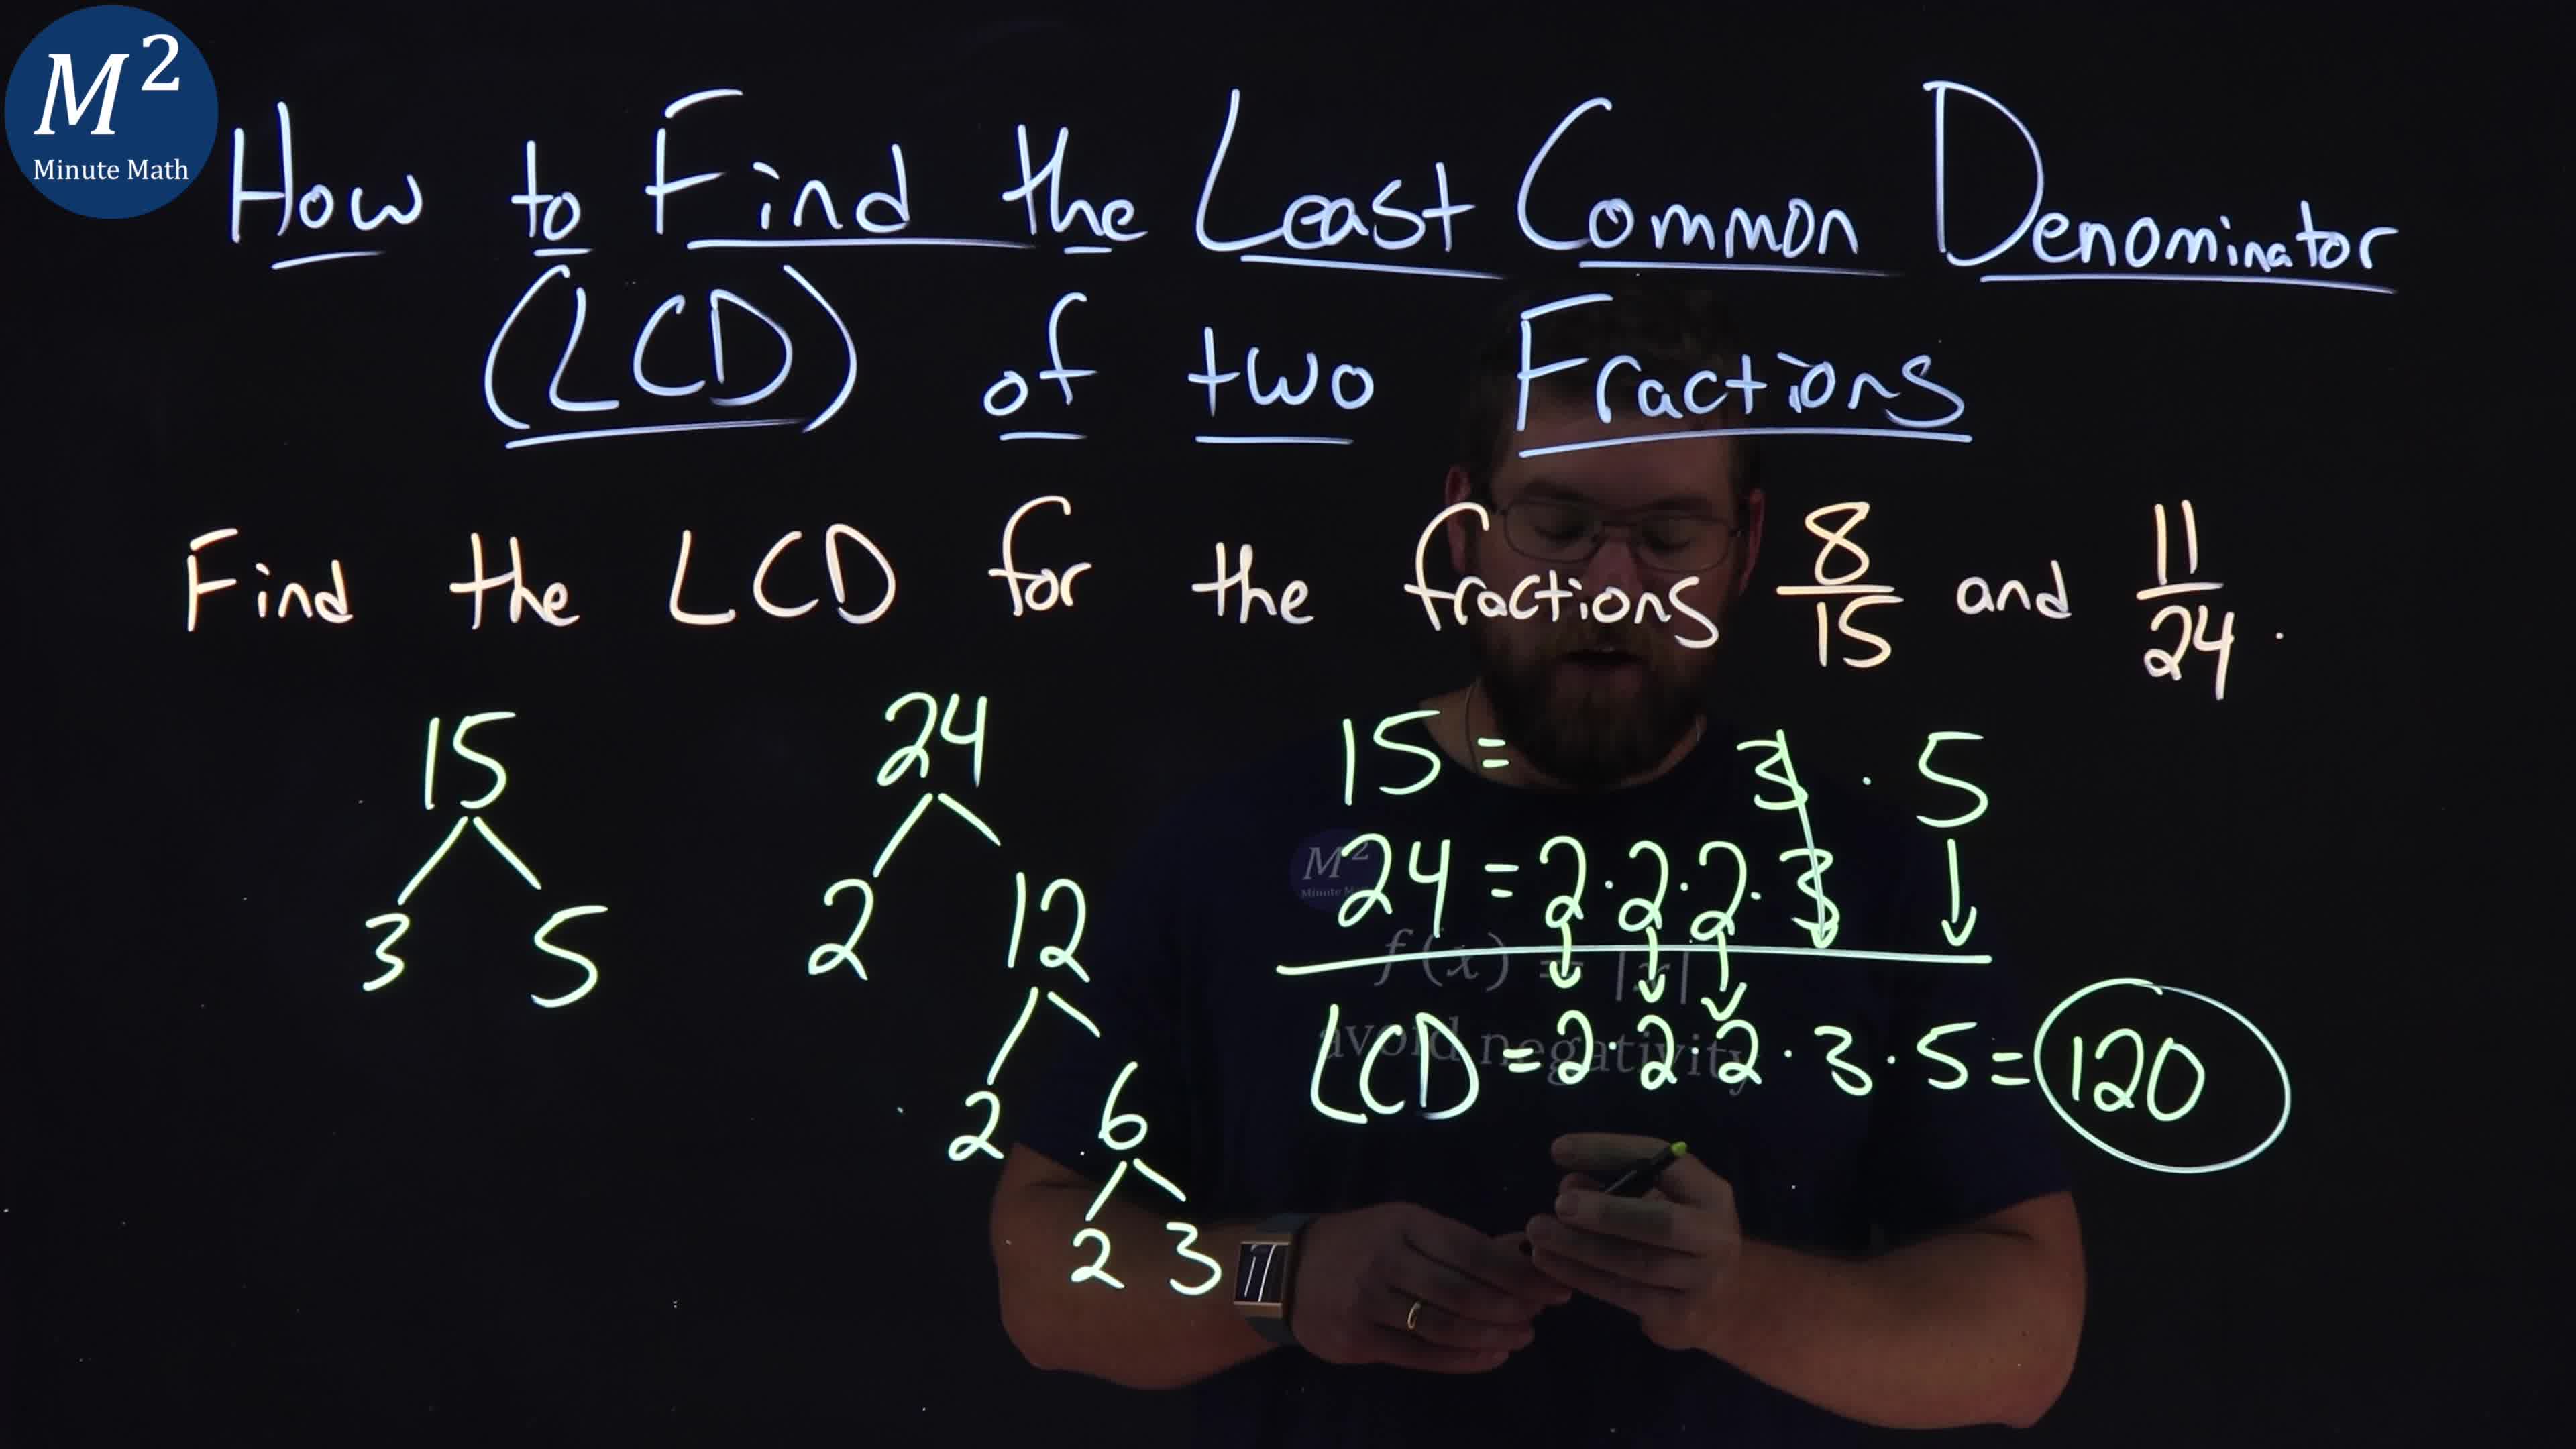 M²
Minute Math
How to Find the Least Common Denominator
(LCD) of two Fractions
Find the LCD for the fractions 8/15 and 11/24.
15
3 5
24
2 12
2 6
2 3
15 = 3 · 5
24 = 2 · 2 · 2 · 3
LCD = 2 · 2 · 2 · 3 · 5 = 120
M²
Minute Math
f(x) = |x|
avoid negativity